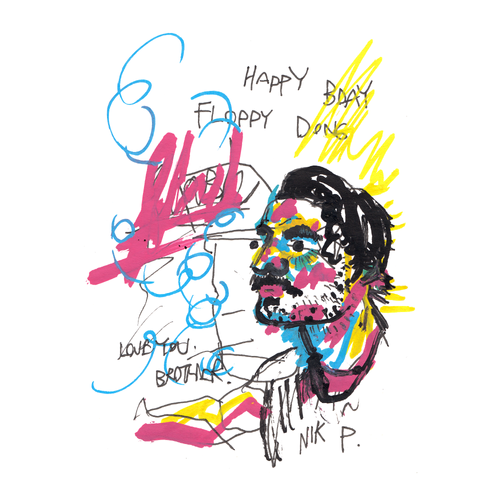 HAPPY BDAY
FLOPPY DONG
LOVE YOU.
BROTHER.
NIK P.